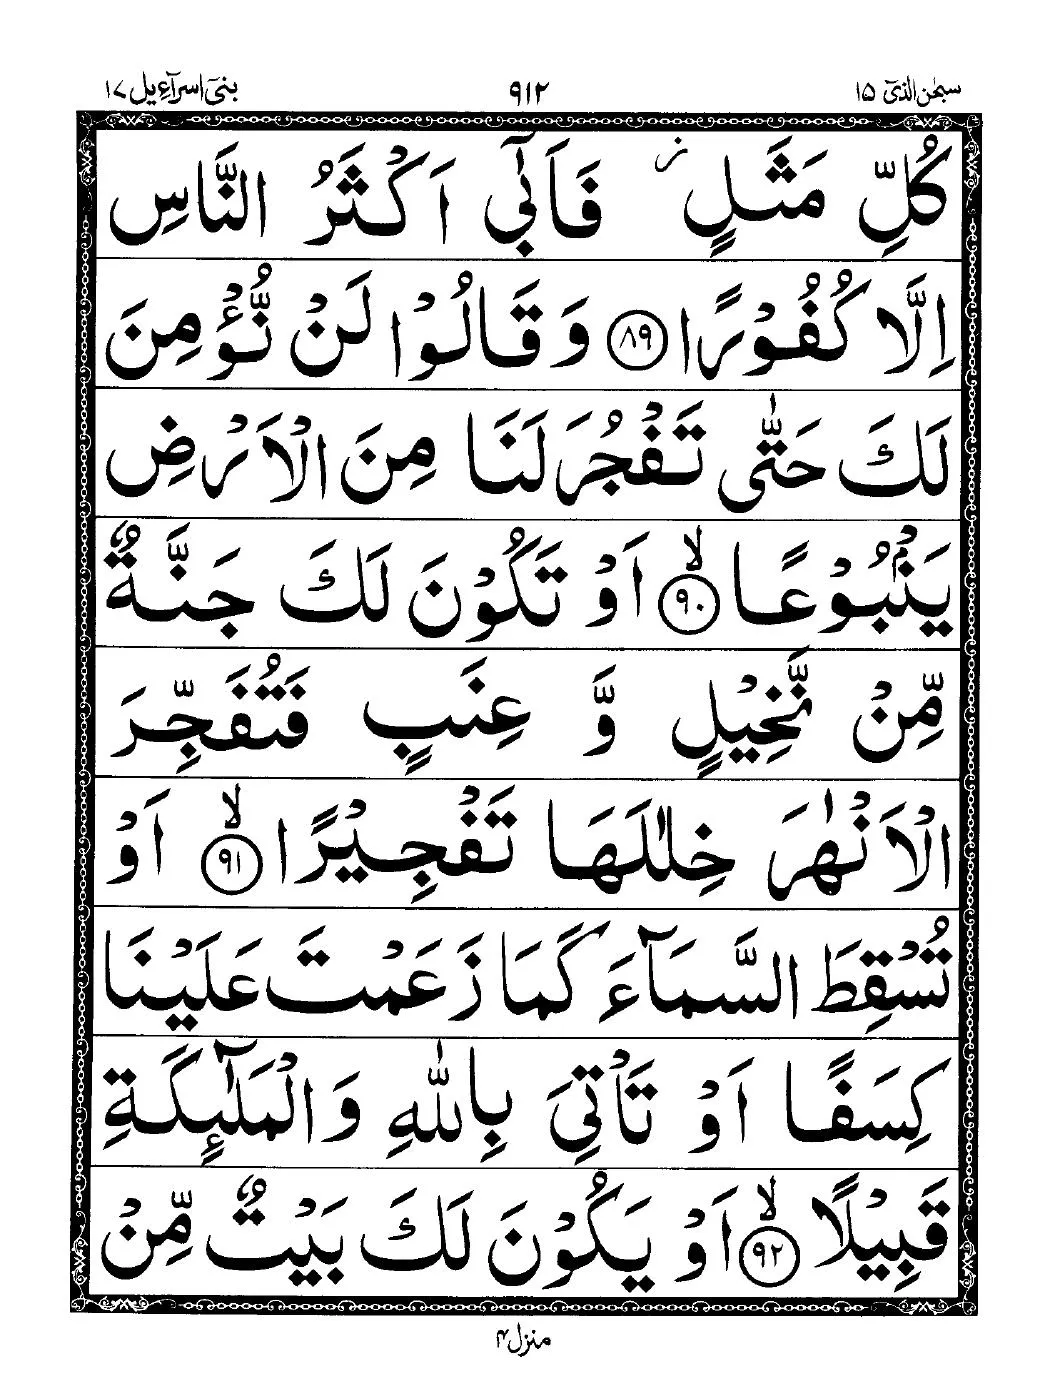 سبحٰن الذیٓ ۱۵ ۹۱۲ بنیٓ اسرآءیل ۱۷
كُلِّ مَثَلٍ ز فَاَبٰٓى اَكْثَرُ النَّاسِ
اِلَّا كُفُوْرًا ۸۹ وَ قَالُوْا لَنْ نُّؤْمِنَ
لَكَ حَتّٰى تَفْجُرَ لَنَا مِنَ الْاَرْضِ
يَنْۢبُوْعًا لا ۹۰ اَوْ تَكُوْنَ لَكَ جَنَّةٌ
مِّنْ نَّخِيْلٍ وَّ عِنَبٍ فَتُفَجِّرَ
الْاَنْهٰرَ خِلٰلَهَا تَفْجِيْرًا لا ۹۱ اَوْ
تُسْقِطَ السَّمَآءَ كَمَا زَعَمْتَ عَلَيْنَا
كِسَفًا اَوْ تَاْتِىَ بِاللّٰهِ وَ الْمَلٰٓئِكَةِ
قَبِيْلًا لا ۹۲ اَوْ يَكُوْنَ لَكَ بَيْتٌ مِّنْ
منزل ۴